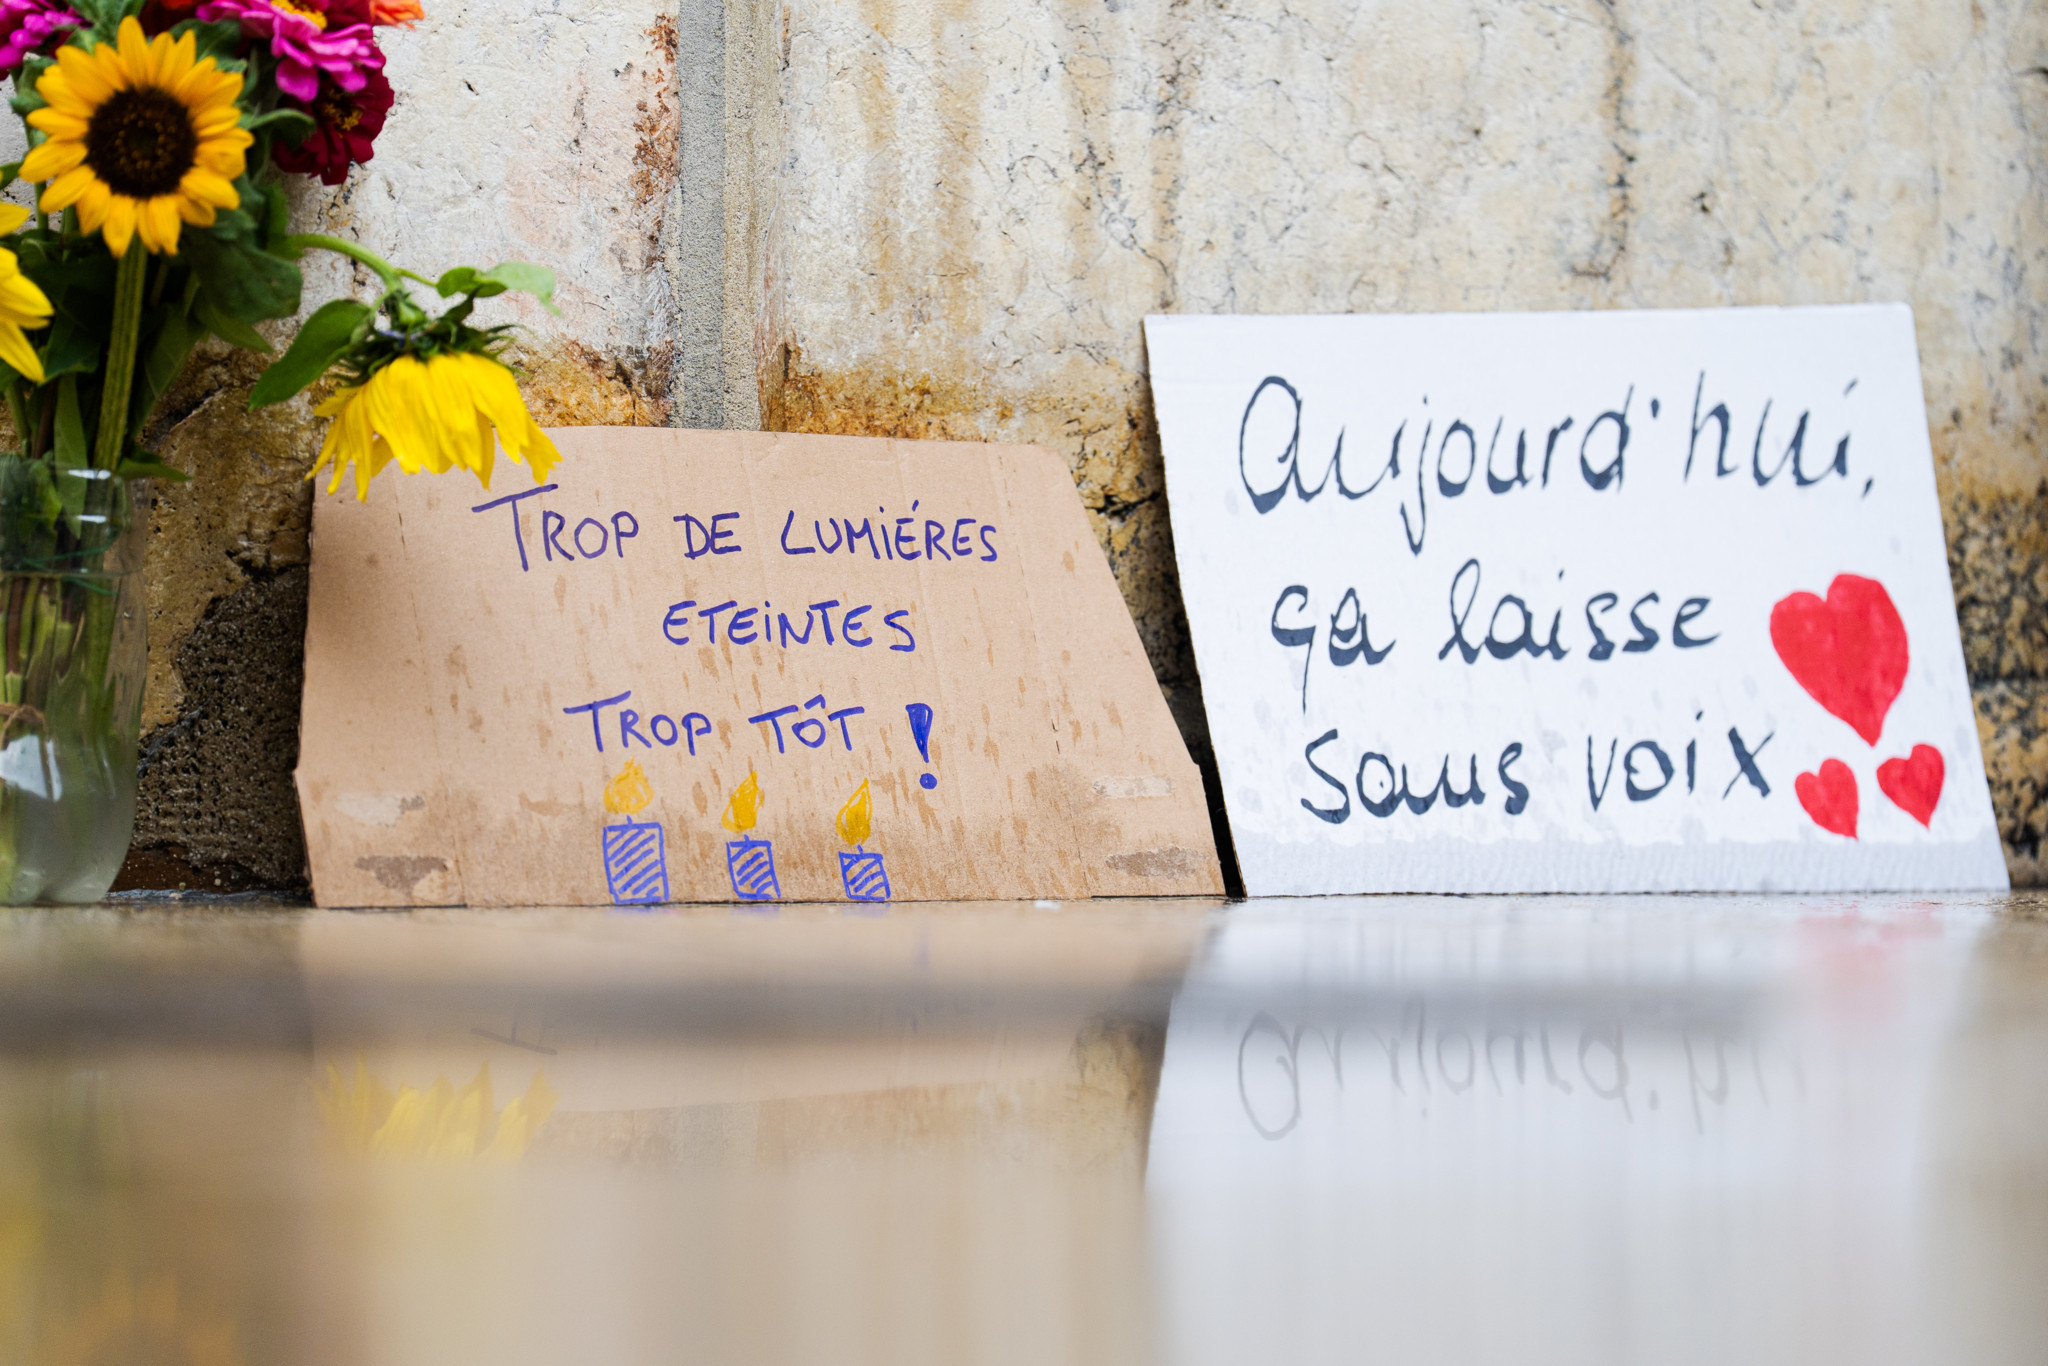 TROP DE LUMIÉRES
ETEINTES
TROP TÔT !
Aujourd'hui,
ça laisse
sans voix